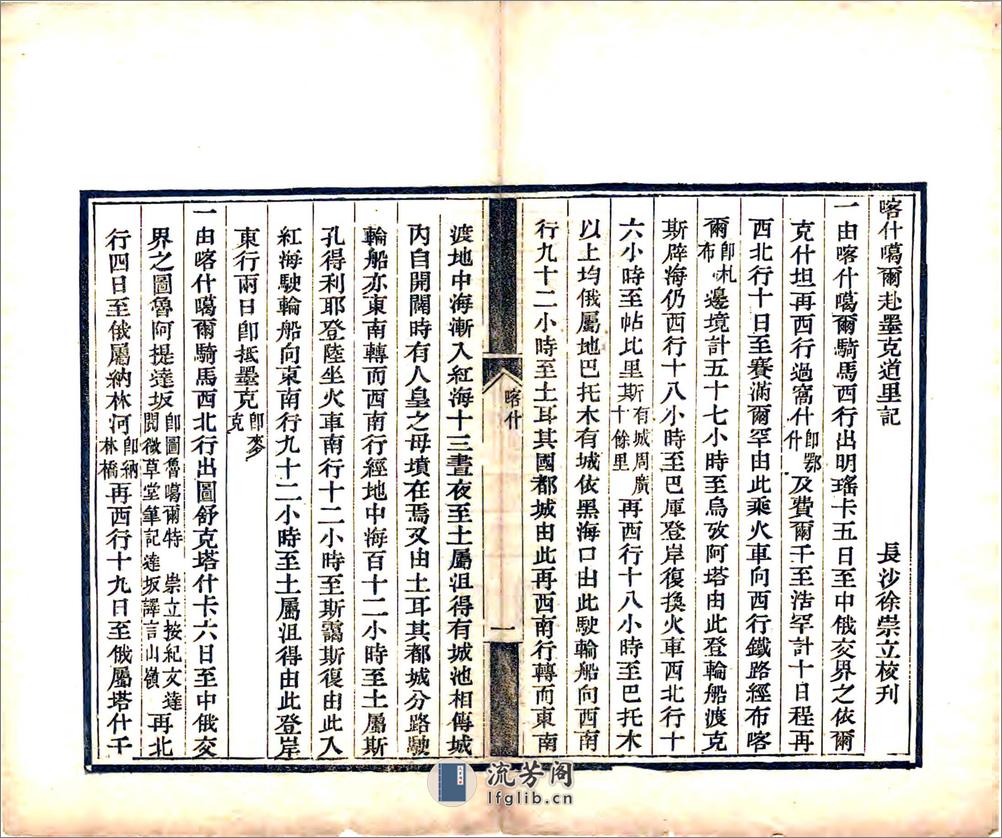 喀什噶爾赴墨克道里記　長沙徐崇立校刊
一由喀什噶爾騎馬西行出明瑤卡五日至中俄交界之依爾
克什坦再西行過窩什即鄂什及費爾干至浩罕計十日程再
西北行十日至賽滿爾罕由此乘火車向西行鐵路經布喀
爾即札布邊境計五十七小時至烏孜阿塔由此登輪船渡克
斯辟海仍西行十八小時至巴庫登岸復換火車西北行十
六小時至帖比里斯有城周廣十餘里再西行十八小時至巴托木
以上均俄屬地巴托木有城依黑海口由此駛輪船向西南
行九十二小時至土耳其國都城由此再西南行轉而東南
喀什
一
渡地中海漸入紅海十三晝夜至土屬沮得有城池相傳城
內自開闢時有人皇之母墳在焉又由土耳其都城分路駛
輪船亦東南轉而西南行經地中海百十二小時至土屬斯
孔得利耶登陸坐火車南行十二小時至斯靄斯復由此入
紅海駛輪船向東南行九十二小時至土屬沮得由此登岸
東行兩日即抵墨克即麥克
一由喀什噶爾騎馬西北行出圖舒克塔什卡六日至中俄交
界之圖魯阿提達坂即圖魯噶爾特　崇立按紀文達閱微草堂筆記達坂譯言山嶺再北
行四日至俄屬納林河即納林橋再西行十九日至俄屬塔什干
流芳閣
lfglib.cn